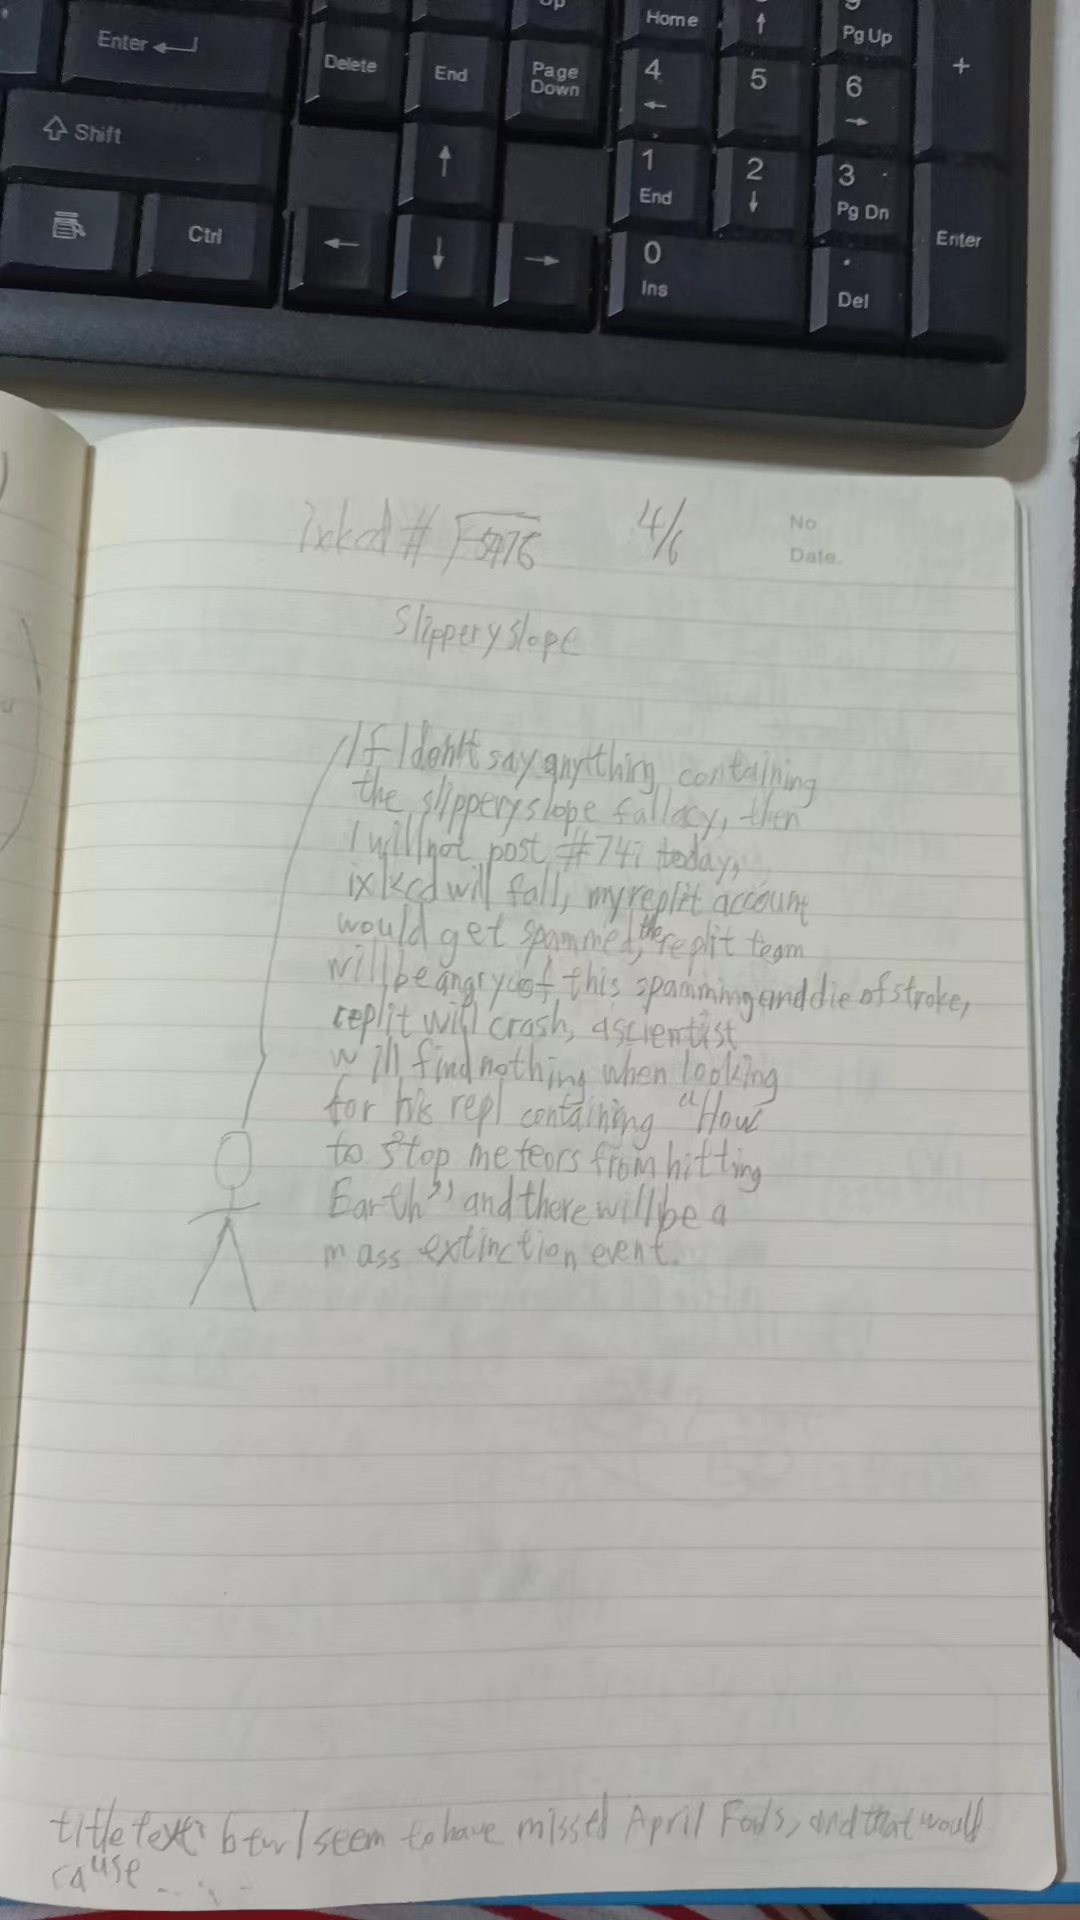 Up
Home
↑
9
Pg Up
+
Enter
Delete
End
Page
Down
4
←
5
6
→
Shift
↑
1
End
2
↓
3
Pg Dn
Enter
Ctrl
←
↓
→
0
Ins
.
Del
ixkcd # √-5476
4/6
No
Date.
slippery slope
If I don't say anything containing
the slippery slope fallacy, then
I will not post #74i today,
ixkcd will fall, my replit account
would get spammed, the replit team
will be angry of this spamming and die of stroke,
replit will crash, a scientist
will find nothing when looking
for his repl containing "How
to stop meteors from hitting
Earth", and there will be a
mass extinction event.
title text: btw I seem to have missed April Fools, and that would
cause .....